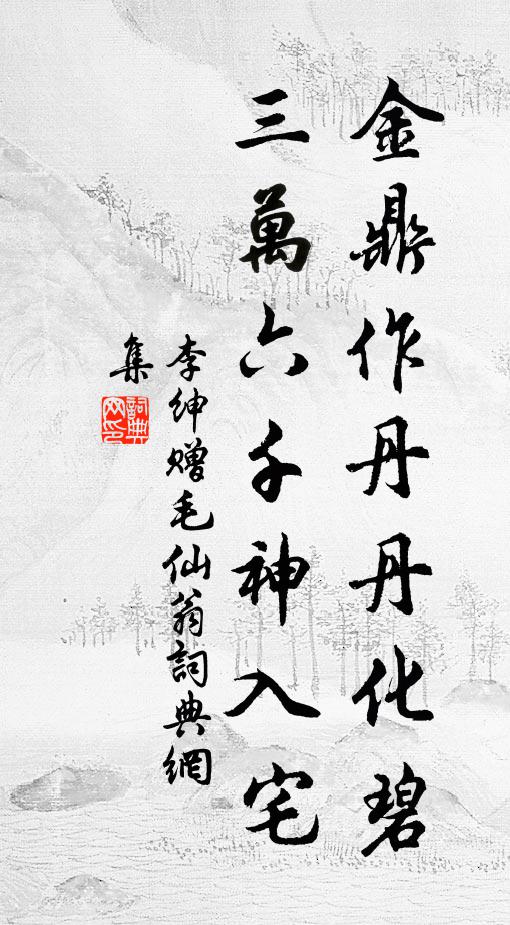 金鼎作丹丹化碧
三萬六千神入宅
李紳贈毛仙翁詞典網
集
詞典
网印